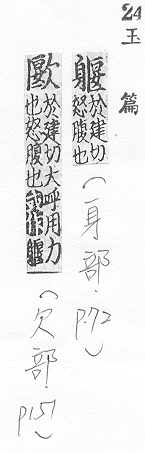 24 玉篇
躽 於建切
怒腹也 (身部. p.72)
於建切大呼用力
也怒腹也或作躽 (欠部. p151)